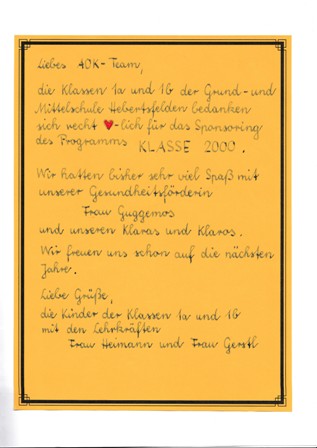 Liebes AOK-Team,
die Klassen 1a und 1b der Grund- und
Mittelschule Hebertsfelden bedanken
sich recht ♥-lich für das Sponsoring
des Programms KLASSE 2000.
Wir hatten bisher sehr viel Spaß mit
unserer Gesundheitsförderin
Frau Guggemos
und unseren Klaras und Klaros.
Wir freuen uns schon auf die nächsten
Jahre.
Liebe Grüße,
die Kinder der Klassen 1a und 1b
mit den Lehrkräften
Frau Heimann und Frau Gerstl